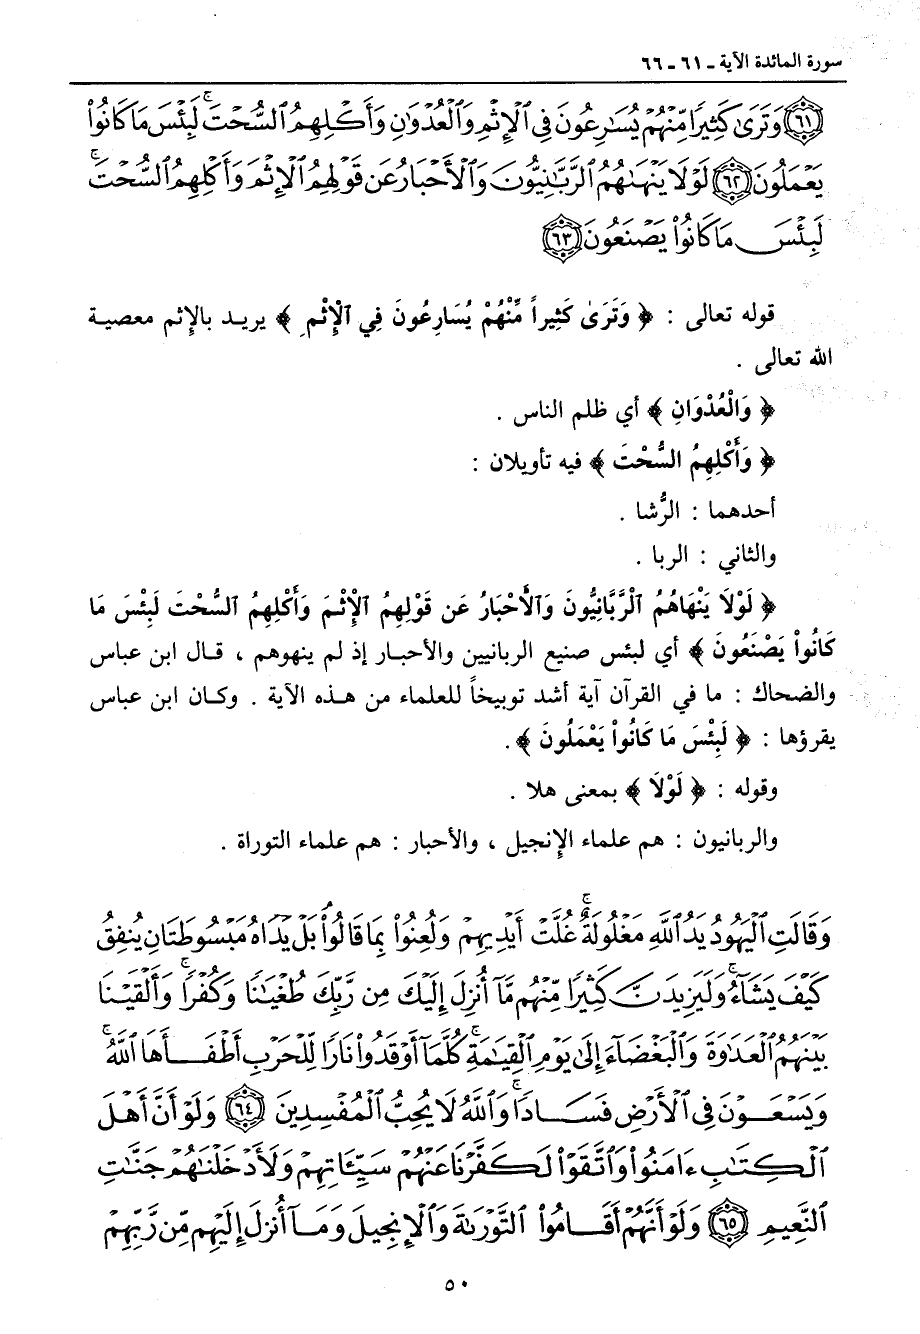 سورة المائدة الآية ـ ٦١ ـ ٦٦
﴿٦١﴾ وَتَرَىٰ كَثِيرًا مِّنْهُمْ يُسَارِعُونَ فِي ٱلْإِثْمِ وَٱلْعُدْوَانِ وَأَكْلِهِمُ ٱلسُّحْتَ ۚ لَبِئْسَ مَا كَانُوا۟
يَعْمَلُونَ ﴿٦٢﴾ لَوْلَا يَنْهَىٰهُمُ ٱلرَّبَّٰنِيُّونَ وَٱلْأَحْبَارُ عَن قَوْلِهِمُ ٱلْإِثْمَ وَأَكْلِهِمُ ٱلسُّحْتَ ۚ
لَبِئْسَ مَا كَانُوا۟ يَصْنَعُونَ ﴿٦٣﴾
قوله تعالى : ﴿ وَتَرَىٰ كَثِيراً مِّنْهُمْ يُسَارِعُونَ فِي ٱلْإِثْمِ ﴾ يريد بالإثم معصية
الله تعالى .
﴿ وَالْعُدْوَانِ ﴾ أي ظلم الناس .
﴿ وَأَكْلِهِمُ السُّحْتَ ﴾ فيه تأويلان :
أحدهما : الرُّشا .
والثاني : الربا .
﴿ لَوْلَا يَنْهَاهُمُ ٱلْرَّبَّانِيُّونَ وَٱلْأَحْبَارُ عَن قَوْلِهِمُ ٱلْإِثْمَ وَأَكْلِهِمُ ٱلسُّحْتَ لَبِئْسَ مَا
كَانُواْ يَصْنَعُونَ ﴾ أي لبئس صنيع الربانيين والأحبار إذ لم ينهوهم ، قال ابن عباس
والضحاك : ما في القرآن آية أشد توبيخاً للعلماء من هذه الآية . وكان ابن عباس
يقرؤها : ﴿ لَبِئْسَ مَا كَانُواْ يَعْمَلُونَ ﴾ .
وقوله : ﴿ لَوْلَا ﴾ بمعنى هلا .
والربانيون : هم علماء الإنجيل ، والأحبار : هم علماء التوراة .
وَقَالَتِ ٱلْيَهُودُ يَدُ ٱللَّهِ مَغْلُولَةٌ ۚ غُلَّتْ أَيْدِيهِمْ وَلُعِنُوا۟ بِمَا قَالُوا۟ ۘ بَلْ يَدَاهُ مَبْسُوطَتَانِ يُنفِقُ
كَيْفَ يَشَآءُ ۚ وَلَيَزِيدَنَّ كَثِيرًا مِّنْهُم مَّآ أُنزِلَ إِلَيْكَ مِن رَّبِّكَ طُغْيَٰنًا وَكُفْرًا ۚ وَأَلْقَيْنَا
بَيْنَهُمُ ٱلْعَدَٰوَةَ وَٱلْبَغْضَآءَ إِلَىٰ يَوْمِ ٱلْقِيَٰمَةِ ۚ كُلَّمَآ أَوْقَدُوا۟ نَارًا لِّلْحَرْبِ أَطْفَأَهَا ٱللَّهُ ۚ
وَيَسْعَوْنَ فِي ٱلْأَرْضِ فَسَادًا ۚ وَٱللَّهُ لَا يُحِبُّ ٱلْمُفْسِدِينَ ﴿٦٤﴾ وَلَوْ أَنَّ أَهْلَ
ٱلْكِتَٰبِ ءَامَنُوا۟ وَٱتَّقَوْا۟ لَكَفَّرْنَا عَنْهُمْ سَيِّـَٔاتِهِمْ وَلَأَدْخَلْنَٰهُمْ جَنَّٰتِ
ٱلنَّعِيمِ ﴿٦٥﴾ وَلَوْ أَنَّهُمْ أَقَامُوا۟ ٱلتَّوْرَىٰةَ وَٱلْإِنجِيلَ وَمَآ أُنزِلَ إِلَيْهِم مِّن رَّبِّهِمْ
٥٠